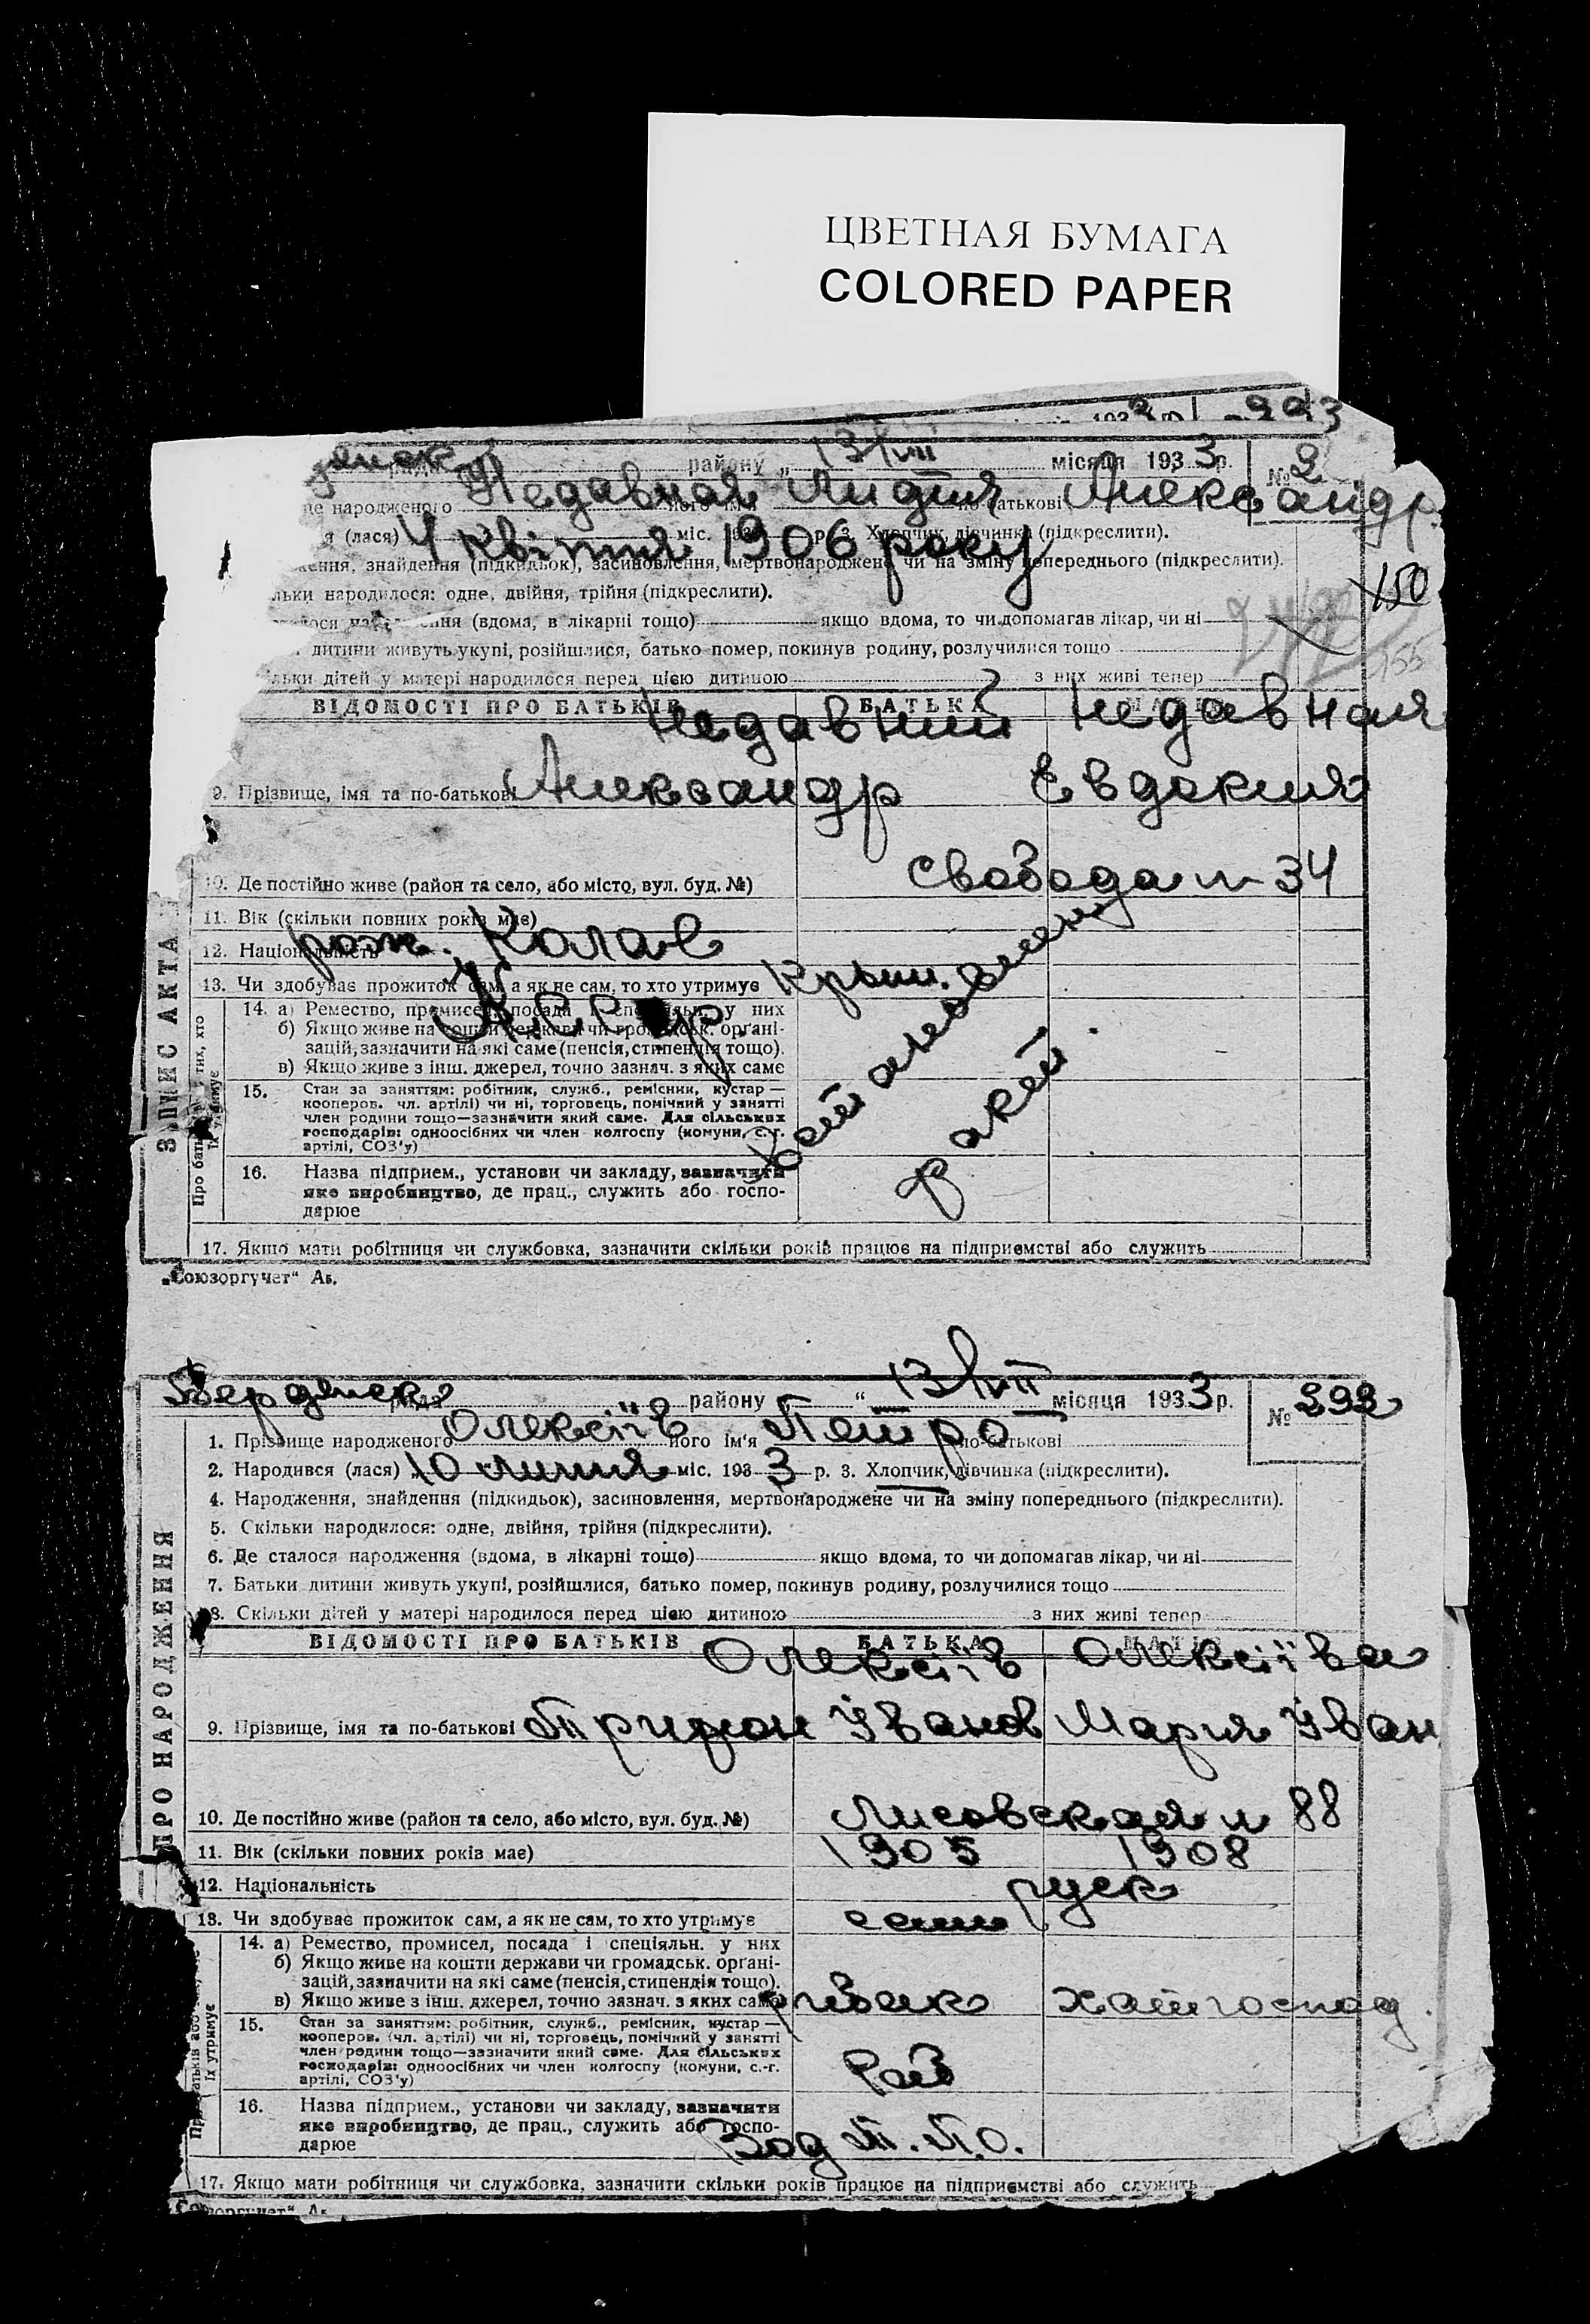 ЦВЕТНАЯ БУМАГА
COLORED PAPER
району „ 13/VIII місяця 1933 р. № 2
народженого Недавная його ім'я Лидия по-батькові Александр.
(лася) 4 квітня 1906 року міс. 193 р. 3. Хлопчик, дівчинка (підкреслити).
знайдення (підкидьок), засиновлення, мертвонароджене чи на зміну попереднього (підкреслити).
народилося: одне, двійня, трійня (підкреслити).
150
(вдома, в лікарні тощо) якщо вдома, то чи допомагав лікар, чи ні
155
дитини живуть укупі, розійшлися, батько помер, покинув родину, розлучилися тощо
дітей у матері народилося перед цією дитиною з них живі тепер
ВІДОМОСТІ ПРО БАТЬКІВ БАТЬКА
Недавний Недавная
9. Прізвище, імя та по-батькові Александр Евдокия
10. Де постійно живе (район та село, або місто, вул. буд. №) Свобода 34
11. Вік (скільки повних років має)
12. Національність
13. Чи здобуває прожиток сам, а як не сам, то хто утримує
14. а) Ремество, промисел, посада і спеціяльн. у них
б) Якщо живе на кошти держави чи громадськ. органі-
зацій, зазначити на які саме (пенсія, стипендія тощо).
в) Якщо живе з інш. джерел, точно зазнач. з яких саме
15. Стан за заняттям: робітник, служб., ремісник, кустар—
кооперов. чл. артілі) чи ні, торговець, помічний у занятті
член родини тощо—зазначити який саме. Для сільських
господарів: одноосібних чи член колгоспу (комуни, с.-г.
артілі, СОЗ'у)
16. Назва підприєм., установи чи закладу, зазначити
яке виробництво, де прац., служить або госпо-
дарює
17. Якщо мати робітниця чи службовка, зазначити скільки років працює на підприємстві або служить
ЗАПИС АКТА
„Союзоргучет“
Бердянск району “ 13/VIII місяця 1933 р. № 292
1. Прізвище народженого Олексіїв його ім'я Петро по-батькові
2. Народився (лася) „10 липня міс. 1933 р. 3. Хлопчик, дівчинка (підкреслити).
4. Народження, знайдення (підкидьок), засиновлення, мертвонароджене чи на зміну попереднього (підкреслити).
5. Скільки народилося: одне, двійня, трійня (підкреслити).
6. Де сталося народження (вдома, в лікарні тощо) якщо вдома, то чи допомагав лікар, чи ні
7. Батьки дитини живуть укупі, розійшлися, батько помер, покинув родину, розлучилися тощо
8. Скільки дітей у матері народилося перед цією дитиною з них живі тепер
ВІДОМОСТІ ПРО БАТЬКІВ БАТЬКА МАТЕРІ
Олексіїв Олексіїва
9. Прізвище, імя та по-батькові Трифон Іванов Мария Іван
10. Де постійно живе (район та село, або місто, вул. буд. №) Лисовская 88
11. Вік (скільки повних років має) 1905 1908
12. Національність руск
13. Чи здобуває прожиток сам, а як не сам, то хто утримує
14. а) Ремество, промисел, посада і спеціяльн. у них
б) Якщо живе на кошти держави чи громадськ. органі-
зацій, зазначити на які саме (пенсія, стипендія тощо).
в) Якщо живе з інш. джерел, точно зазнач. з яких саме хатгоспод.
15. Стан за заняттям: робітник, служб., ремісник, кустар—
кооперов. (чл. артілі) чи ні, торговець, помічний у занятті
член родини тощо—зазначити який саме. Для сільських
господарів: одноосібних чи член колгоспу (комуни, с.-г.
артілі, СОЗ'у) Раб
16. Назва підприєм., установи чи закладу, зазначити
яке виробництво, де прац., служить або госпо-
дарює
17. Якщо мати робітниця чи службовка, зазначити скільки років працює на підприємстві або служить
ПРО НАРОДЖЕННЯ